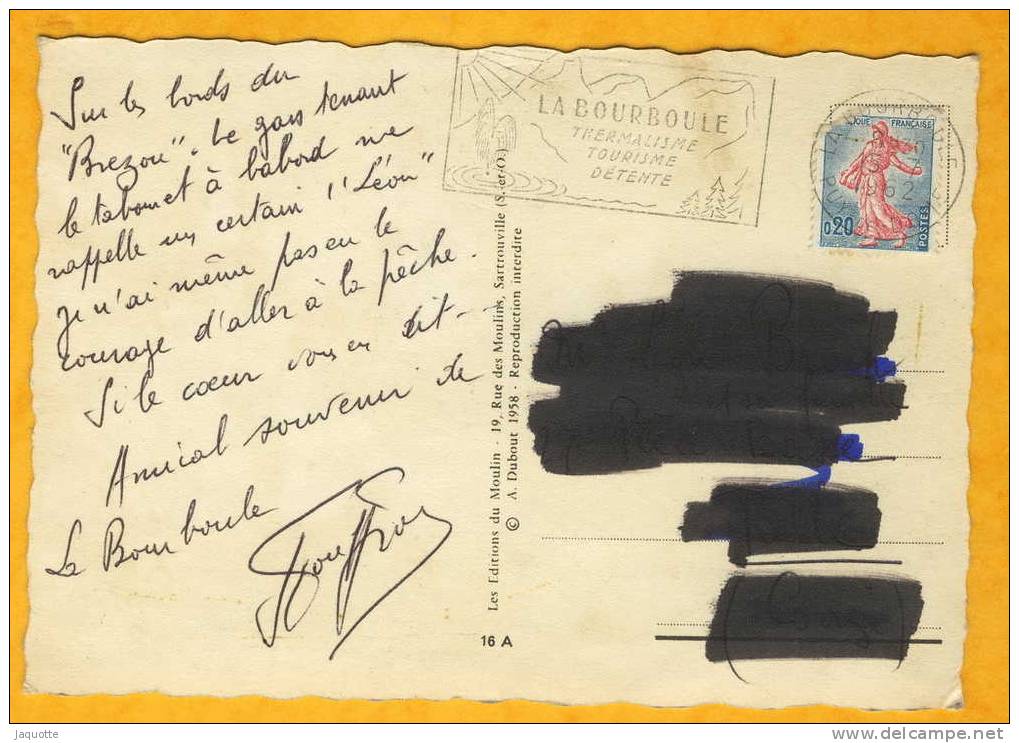 Sur les bords du
"Brezou". Le gars tenant
le tabouret à babord me
rappelle un certain "Léon"
Je n'ai même pas eu le
courage d'aller à la pêche.
Si le cœur vous en dit--
Amical souvenir de
La Bourboule
LA BOURBOULE
THERMALISME
TOURISME
DÉTENTE
Les Editions du Moulin - 19, Rue des Moulins, Sartrouville (S.-et-O.)
© A. Dubout 1958 - Reproduction interdite
16 A
1962
FRANÇAISE
0,20
POSTES
Jaquotte
www.delcampe.net